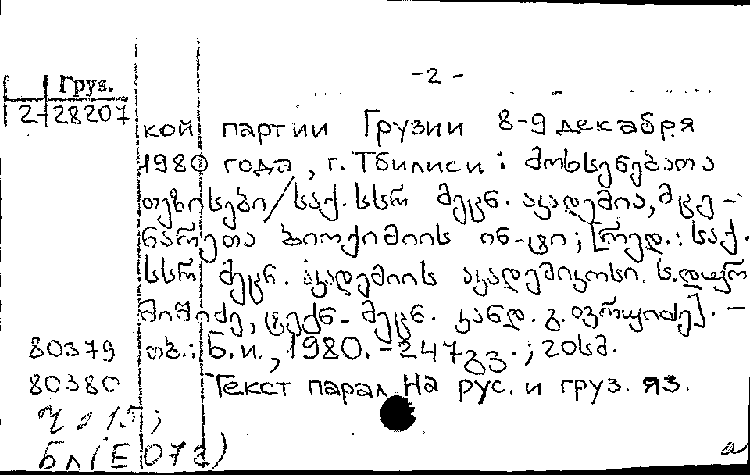 -2-
Груз.
2-28207
кой партии Грузии 8-9 декабря
1980 года, г. Тбилиси: მოხსენებათა
თეზისები/საქ. სსრ მეცნ. აკადემია, მცე-
ნარეთა ბიოქიმიის ინ-ტი; [რედ.: საქ.
სსრ მეცნ. აკადემიის აკადემიკოსი. ს. დურ
მიშიძე, ტექნ. მეცნ. კანდ. გ.
80379 თბ.: Б.и., 1980. - 247 გვ.; 20სმ.
80380 Текст парал. На рус. и груз. яз.
Бл(Е072)